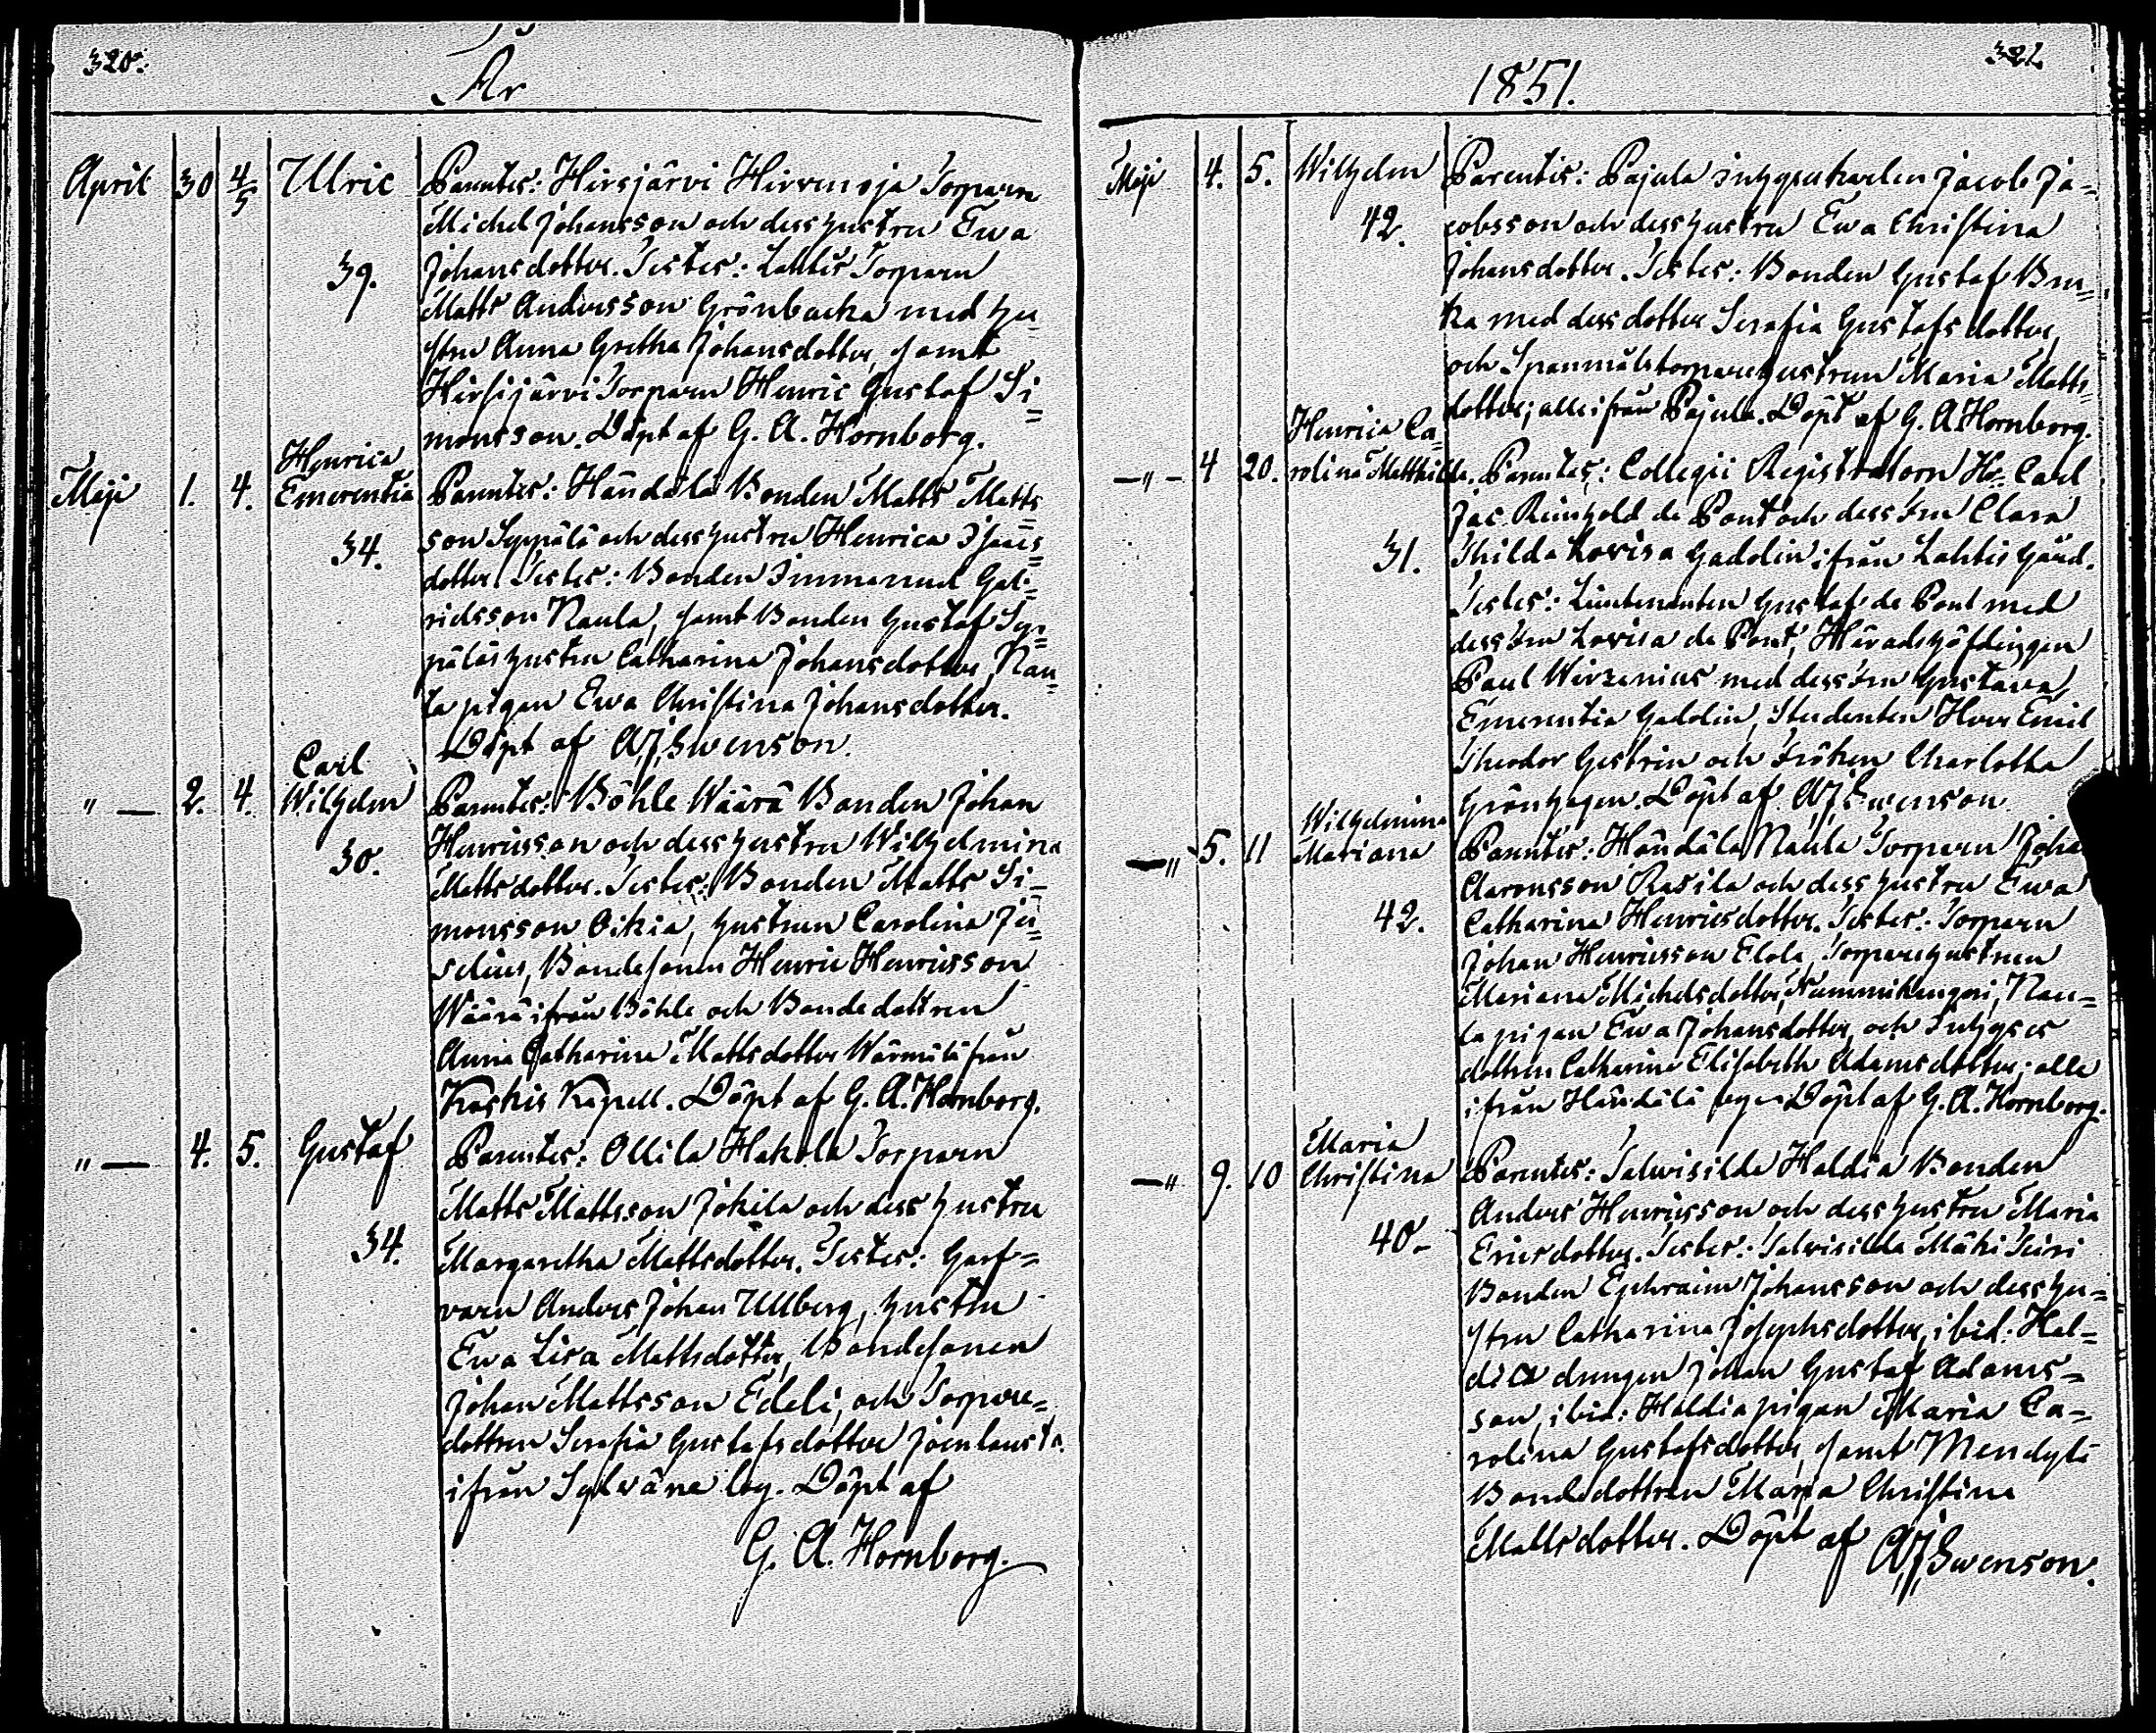 320.
År
April 30 4/5 Ulric Parentes: Hirsjärvi Hirvenoja Torparn
Michel Johansson och dess hustru Ewa
39. Johansdotter. Testes: Lahtis Torparn
Matts Andersson Grönbacka med hu=
stru Anna Gretha Johansdotter, samt
Hirsijärvi Torparn Henric Gustaf Si=
monsson. Döpt af G. A. Hornborg.
Henrica
Maji 1. 4. Emerentia Parentes: Händälä Bonden Matts Matts=
34. son Syppälä och dess hustru Henrica Isaacs=
dotter. Testes: Bonden Immanuel Gab=
rielsson Naula, samt Bonden Gustaf Syp=
päläs hustru Catharina Johansdotter, Nau=
la pigan Ewa Christina Johansdotter.
Döpt af A. J. Swenson.
Carl
" — 2. 4. Wilhelm Parentes: Böhle Wäärä Bonden Johan
30. Henricsson och dess hustru Wilhelmina
Mattsdotter. Testes: Bonden Matts Si=
monsson Oikia, hustrun Carolina Ju=
selius, Bondesonen Henric Henricsson
Wäärä ifrån Böhle och Bondedottren
Anna Catharina Mattsdotter Wärmälä från
Koskis Kapell. Döpt af G. A. Hornborg.
" — 4. 5. Gustaf Parentes: Ollila Hakola Torparn
Matts Mattsson Jokila och dess hustru
34. Margaretha Mattsdotter. Testes: Garf=
varn Anders Johan Ullberg, hustru
Ewa Lisa Mattsdotter, Bondesonen
Johan Mattsson Edeli, och Torpare=
dottren Serafia Gustafsdotter Joenlausta
ifrån Sylwäne by. Döpt af
G. A. Hornborg.
321.
1851.
Maji 4. 5. Wilhelm Parentes: Pajula Inhysekarlen Jacob Ja=
42. cobsson och dess hustru Ewa Christina
Johansdotter. Testes: Bonden Gustaf Bru=
ka med dess dotter Serafia Gustafsdotter,
och Spanmålstorparehustrun Maria Matts=
dotter; alle ifrån Pajula. Döpt af G. A. Hornborg.
Henrica Ca=
— " — 4 20. rolina Matthilda. Parentes: Collegii Registratorn Hr. Carl
Jac. Reinhold de Pont och dess Fru Clara
31. Thilda Lovisa Gadolin ifrån Lahtis Gård.
Testes: Lieutenanten Gustaf de Pont med
dess Fru Lovisa de Pont, Häradshöfdingen
Paul Wirzenius med dess Fru Gustava
Emerentia Gadolin, Studenten Herr Emil
Theodor Gestrin och Fröken Charlotta
Grönhagen. Döpt af A. J. Swenson.
Wilhelmina
— " 5. 11 Mariana Parentes: Händälä Naula Torparn Joha
Aaronsson Rasila och dess hustru Ewa
42. Catharina Henricsdotter. Testes: Torparn
Johan Henricsson Elola, Torparehustrun
Mariana Michelsdotter Nummikangori, Nau=
la pigan Ewa Johansdotter, och Inhyses
dottren Catharina Elisabeth Adamsdotter; alle
ifrån Händälä by. Döpt af G. A. Hornborg.
Maria
— " 9. 10 Christina Parentes: Talwisilda Haldia Bonden
Anders Henricsson och dess hustru Maria
40. Ericsdotter. Testes: Talwisilda Mäki Seiri
Bonden Ephraim Johansson och dess hu=
stru Catharina Josephsdotter, ibid: Hal=
dia drengen Johan Gustaf Adams=
son, ibid: Haldia pigan Maria Ca=
rolina Gustafsdotter, samt Mendylä
Bondedottren Maria Christina
Mattsdotter. Döpt af A. J. Swenson.